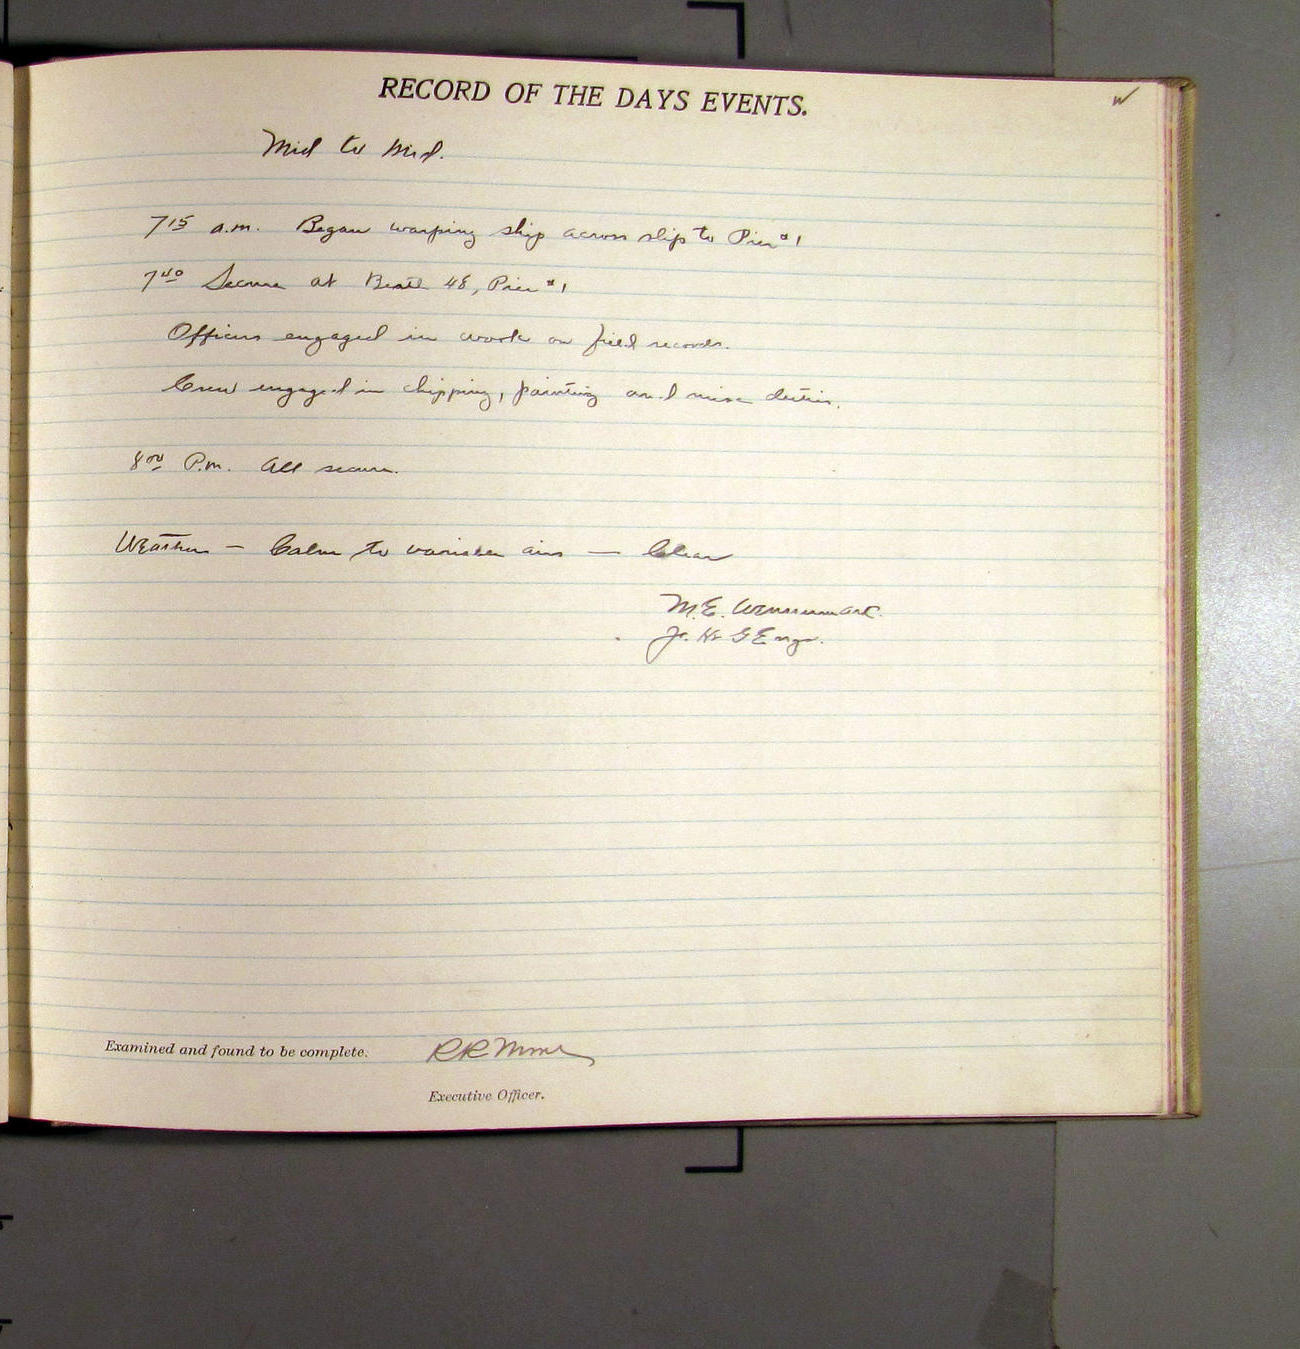 RECORD OF THE DAYS EVENTS.
Mid to Mid.
7 15 a.m. Began warping ship across slip to Pier #1
7 40 Secure at Berth 48, Pier #1
Officers engaged in work on field records.
Crew engaged in chipping, painting and misc duties.
8 00 P.m. All secure.
Weather — Calm to variable airs — Clear
M.E. Wennermark.
Jr. H & G Engr.
Examined and found to be complete.
R R Moore
Executive Officer.